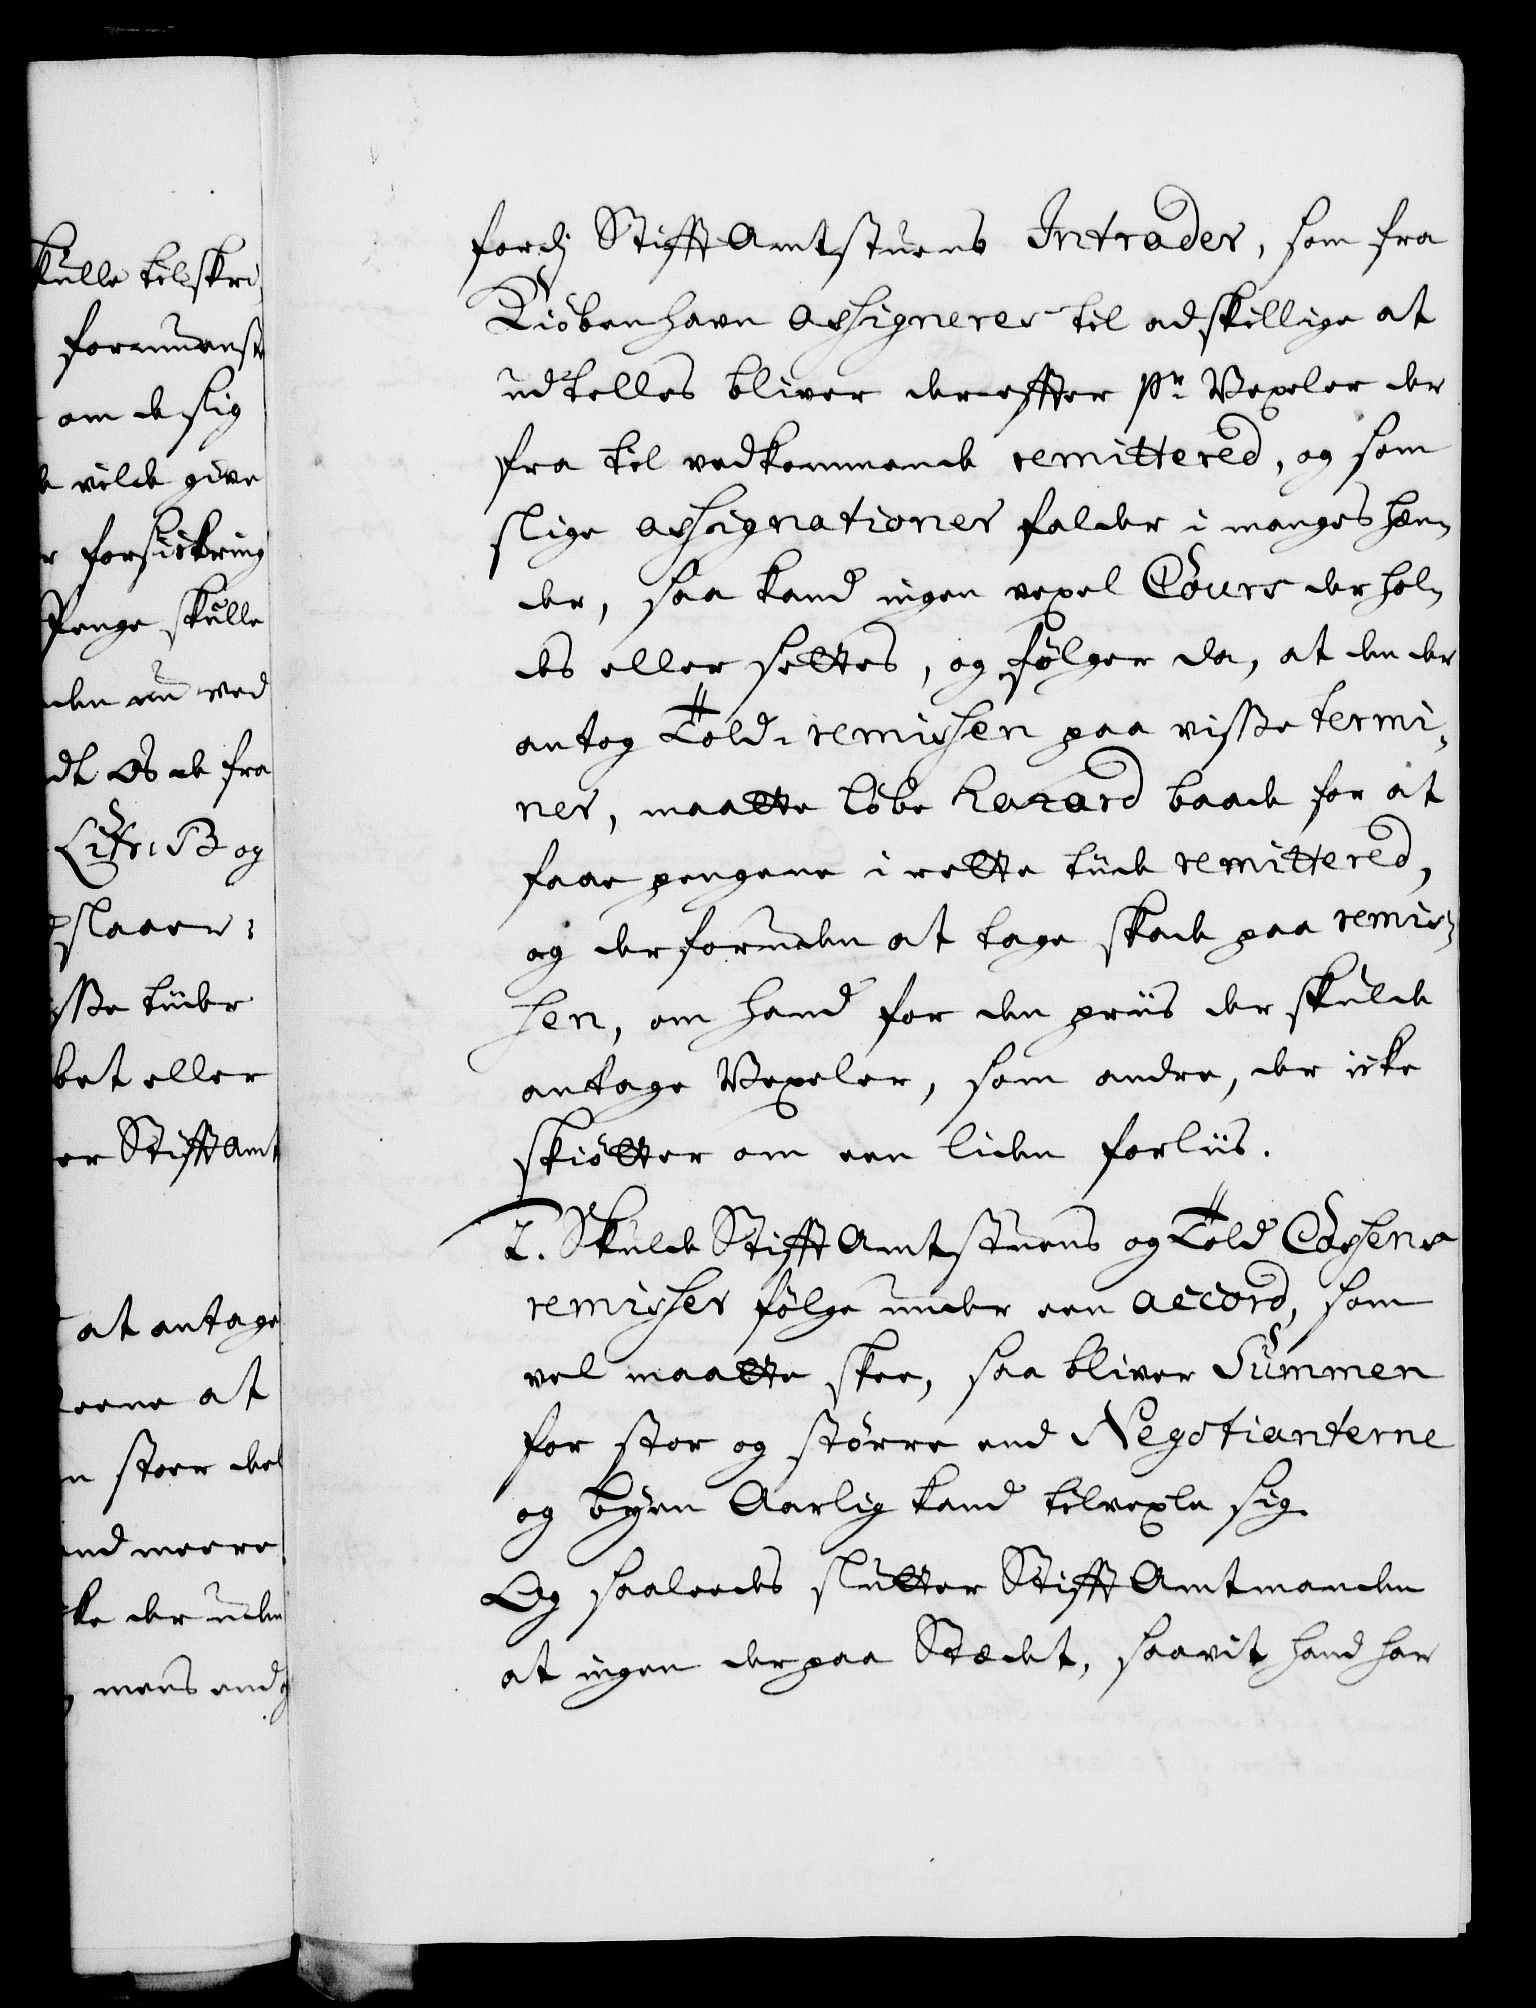 kulle tilskri
formuensk
om de slig
vilde give
forsickring
Penge skulle
den nu ved
dt Os de fra
Litr: B og
slaaen:
isse tiider
bet eller
er StifftAmt
at antage
eene at
n stoer deel
end meere
ke der uden
mens end
fordj StifftAmtstuens Intrader, som fra
Kiöbenhavn assigneres til adskillige at
udtelles bliver dereffter pr Vexeler der
fra til vedkommende remittered, og som
slige assignationer falder i manges hæn¬
der, saa kand ingen vexel Cours der hol¬
des eller settes, og fölger da, at den der
antog Told-remissen paa visse termi¬
ner, maatte löbe hazard baade for at
faae pengene i rette tiide remittered,
og der foruden at tage skade paa remis¬
sen, om hand for den priis der skulde
antage Vexeler, som andre, der icke
skiötter om een liden forliis.
2. Skulde StifftAmtstuens og Told Cassens
remisser fölge under een accord, som
vel maatte skee, saa bliver Summen
for stor og större end Negotianterne
og byen Aarlig kand tilvexle sig.
Og saaleedes slutter StifftAmtmanden
at ingen der paa Stædet, saavit hand har